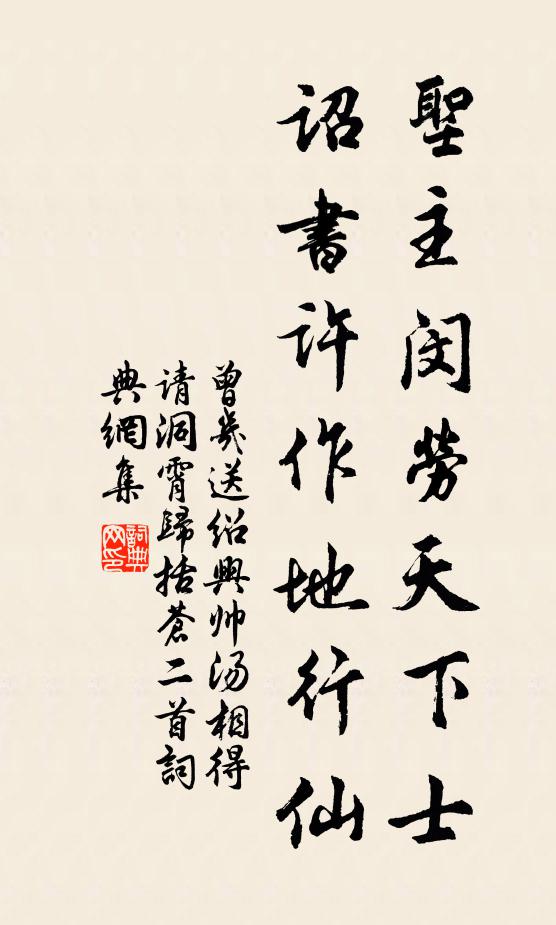 聖主閔勞天下士
詔書許作地行仙
曾幾送紹興帅汤相得
请洞霄歸括蒼二首詞
典網集
詞典網印